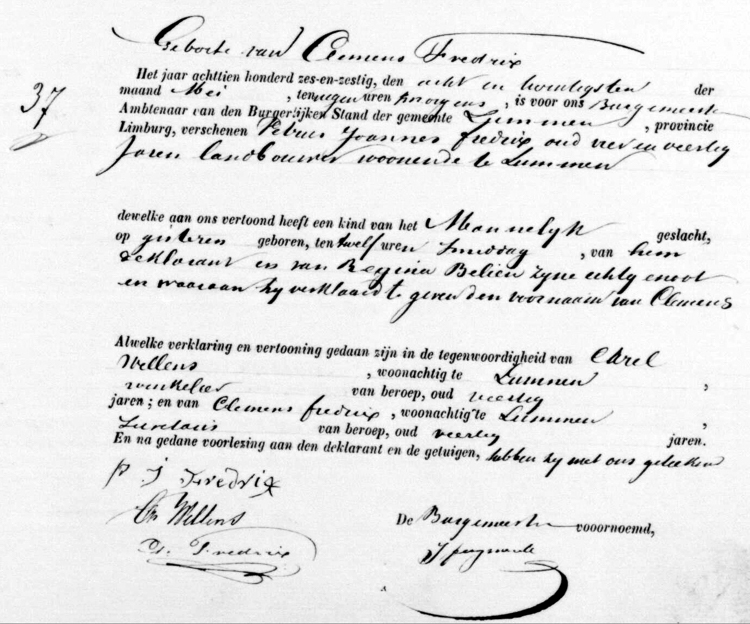 Geboorte van Clemens Fredrix
37
Het jaar achttien honderd zes-en-zestig, den acht en twintigsten der
maand Mei, ten negen uren smorgens, is voor ons Burgemeester
Ambtenaar van den Burgerlijken Stand der gemeente Lummen, provincie
Limburg, verschenen Petrus Joannes Fredrix oud vier en veertig
Jaren landbouwer woonende te Lummen
dewelke aan ons vertoond heeft een kind van het Mannelyk geslacht,
op gisteren geboren, ten twelf uren smiddag, van hem
deklarant en van Regina Belien zyne echtgenoot
en waaraan hy verklaard te geven den voornaam van Clemens
Alwelke verklaring en vertooning gedaan zijn in de tegenwoordigheid van Carel
Wellens, woonachtig te Lummen,
winkelier van beroep, oud veertig
jaren; en van Clemens fredrix, woonachtig te Lummen,
van beroep, oud veertig jaren.
En na gedane voorlezing aan den deklarant en de getuigen, hebben zy met ons geteekend
p j Fredrix
Ch Wellens
De Burgemeester vooornoemd,
Cl. Fredrix